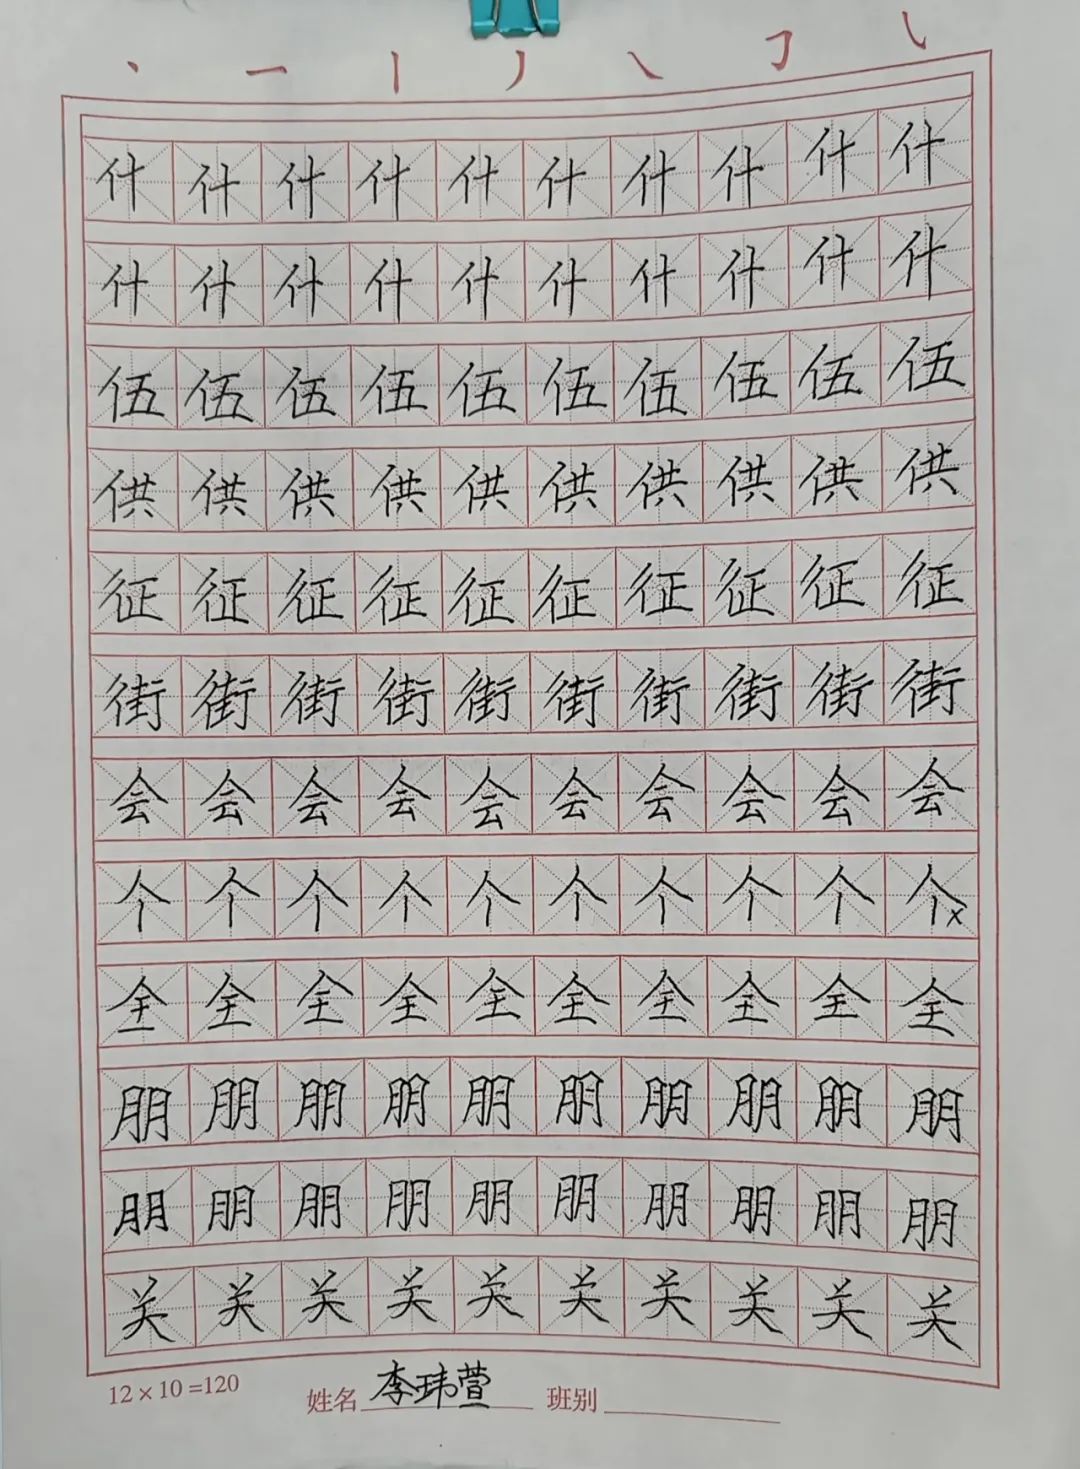 什什什什什什什什什什
什什什什什什什什什什
伍伍伍伍伍伍伍伍伍伍
供供供供供供供供供供
征征征征征征征征征征
街街街街街街街街街街
会会会会会会会会会会
个个个个个个个个个个x
全全全全全全全全全全
朋朋朋朋朋朋朋朋朋朋
朋朋朋朋朋朋朋朋朋朋
关关关关关关关关关关
12×10=120 姓名 李玮萱 班别